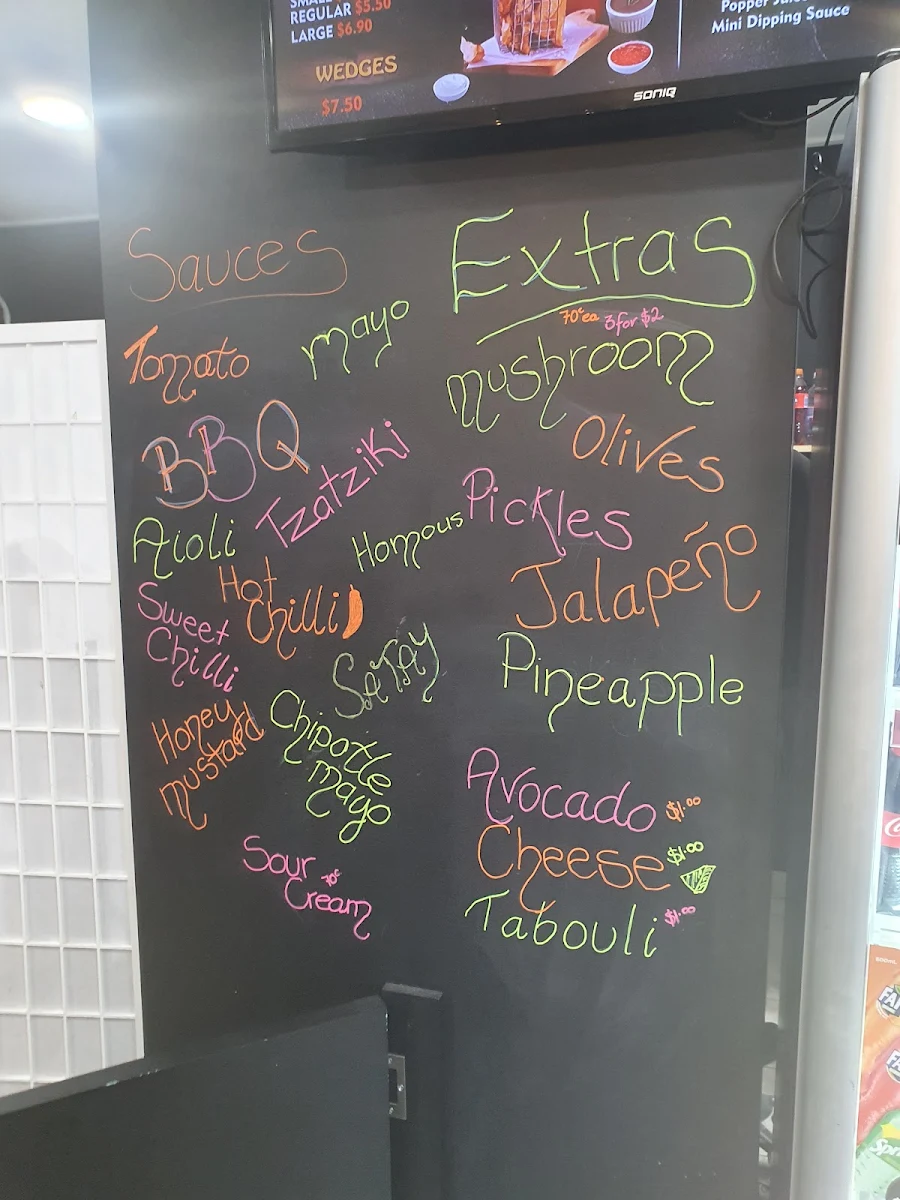 REGULAR $5.50
LARGE $6.90
WEDGES
$7.50
Mini Dipping Sauce
SONIQ
Sauces
Tomato
mayo
BBQ
Tzatziki
Aioli
Homous
Hot
Chilli
Sweet
Chilli
Satay
Honey
mustard
Chipotle
mayo
Sour 70c
Cream
Extras
70c ea 3 for $2
mushroom
Olives
Pickles
Jalapeño
Pineapple
Avocado $1.00
Cheese $1.00
Tabouli $1.00